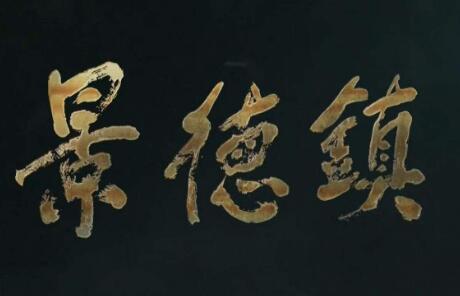 景德鎮